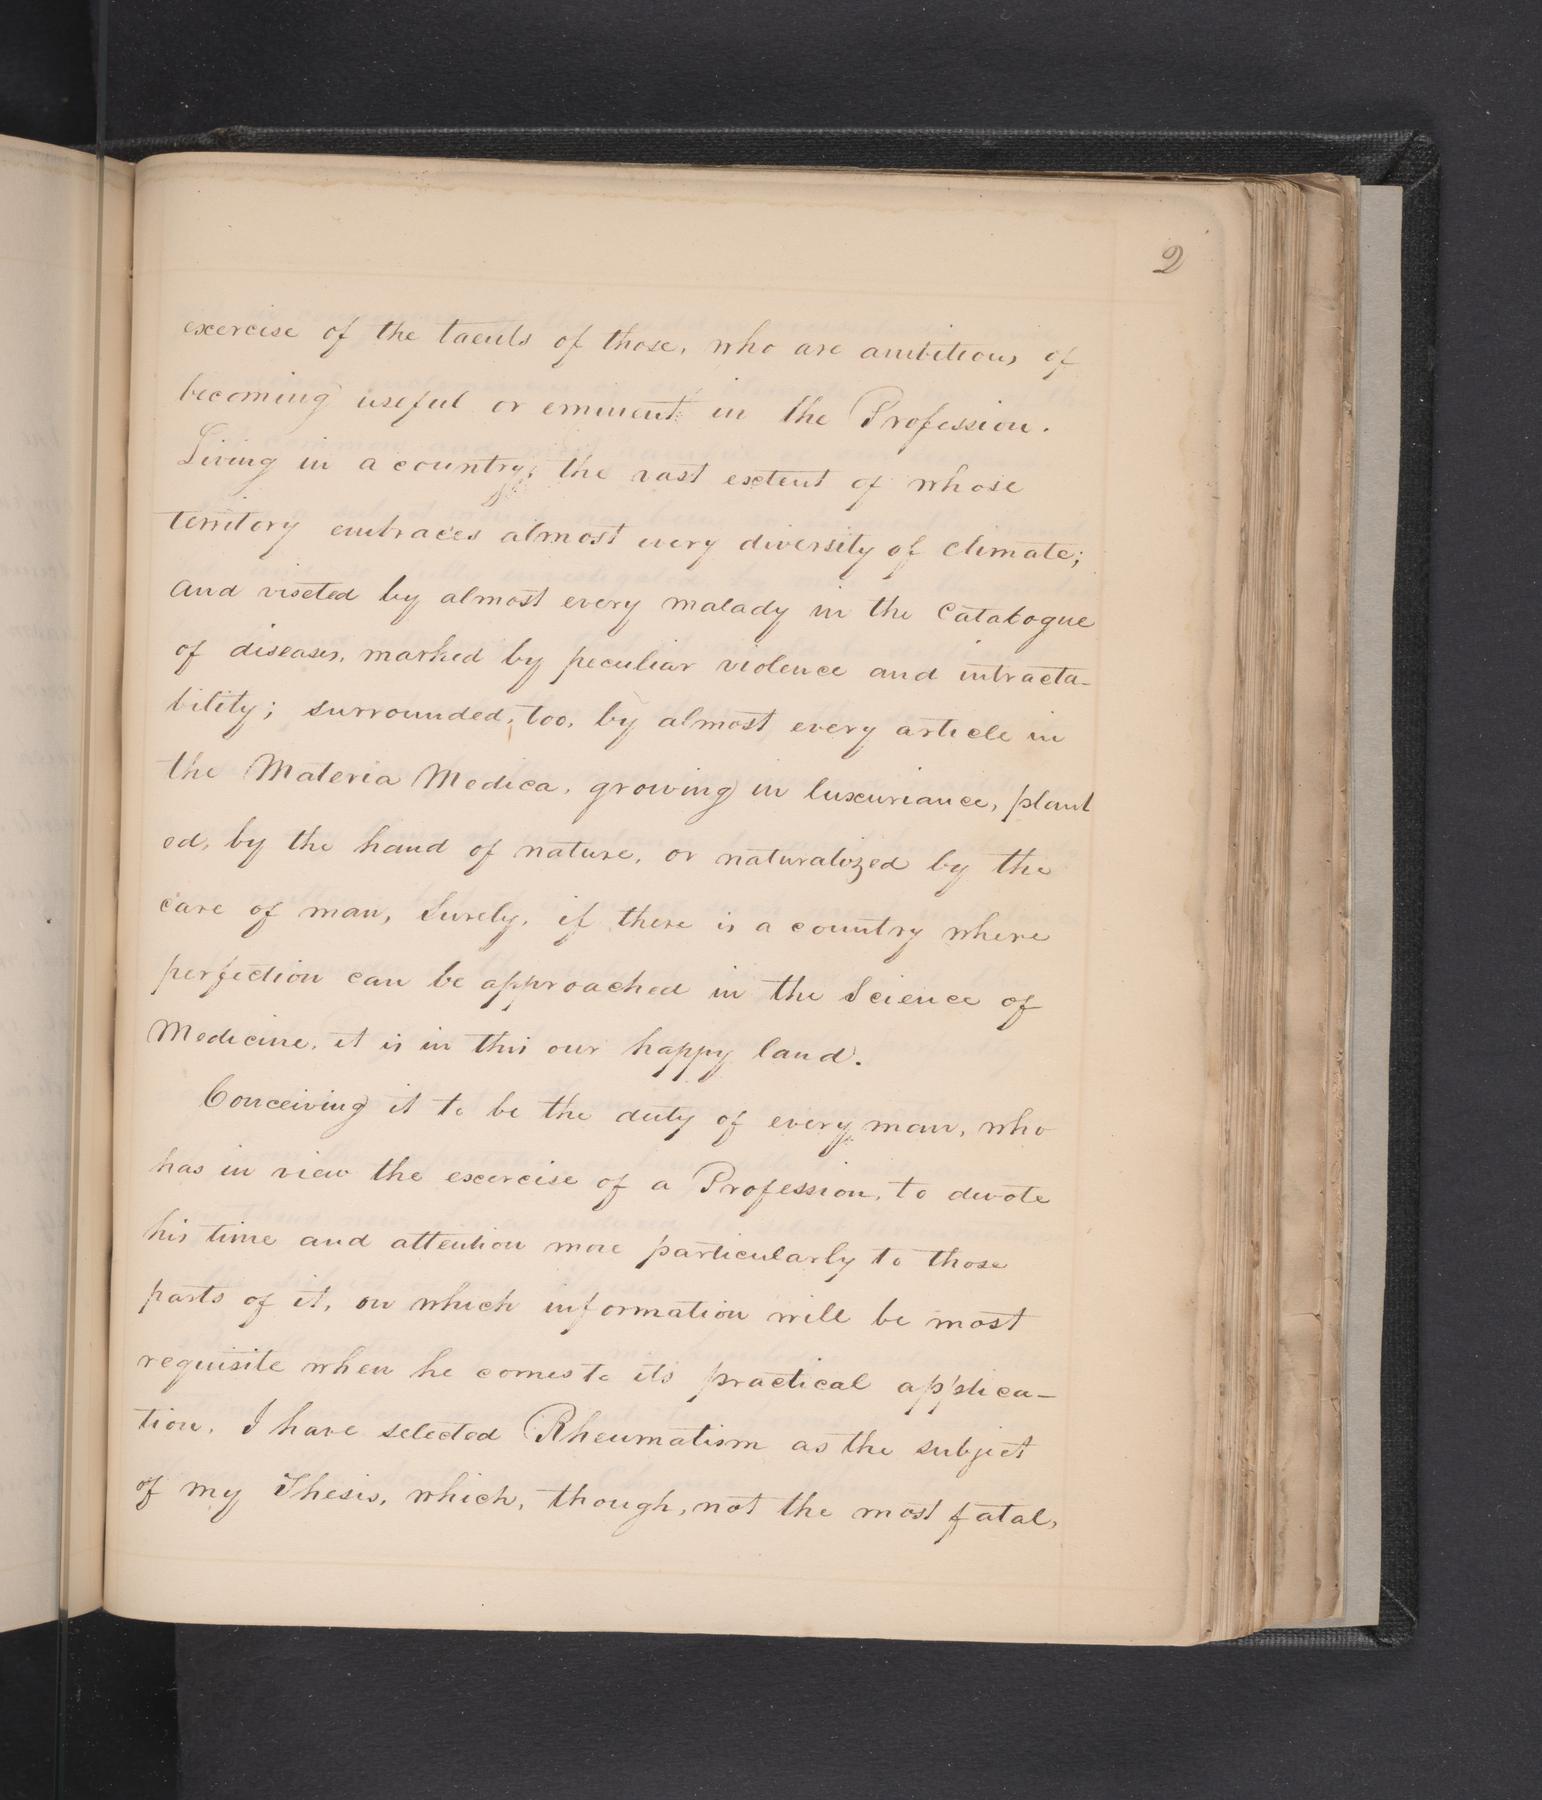 2
exercise of the taents of those, who are ambitious of
becoming useful or eminent in the Profession.
Living in a country, the vast extent of whose
territory embraces almost every diversity of climate;
and viseted by almost every malady in the Catalogue
of diseases, marked by peculiar violence and intracta-
bility; surrounded, too, by almost every article in
the Materia Medica, growing in luxuriance, plant
ed, by the hand of nature, or naturalized by the
care of man, Surely, if there is a country where
perfection can be approached in the Science of
Medicine, it is in this our happy land.
Conceiving it to be the duty of every man, who
has in view the exercise of a Profession, to devote
his time and attention more particularly to those
parts of it, on which information will be most
requisite when he comes to its practical applica-
tion, I have selected Rheumatism as the subject
of my Thesis, which, though, not the most fatal,